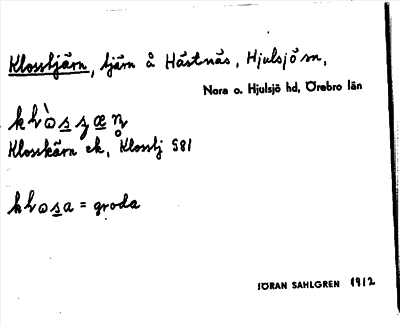 Klosstjärn, tjärn å Hästnäs, Hjulsjö sn,
Nora o. Hjulsjö hd, Örebro län
Klosskärn ek, Klosstj S81
= groda
JÖRAN SAHLGREN 1912